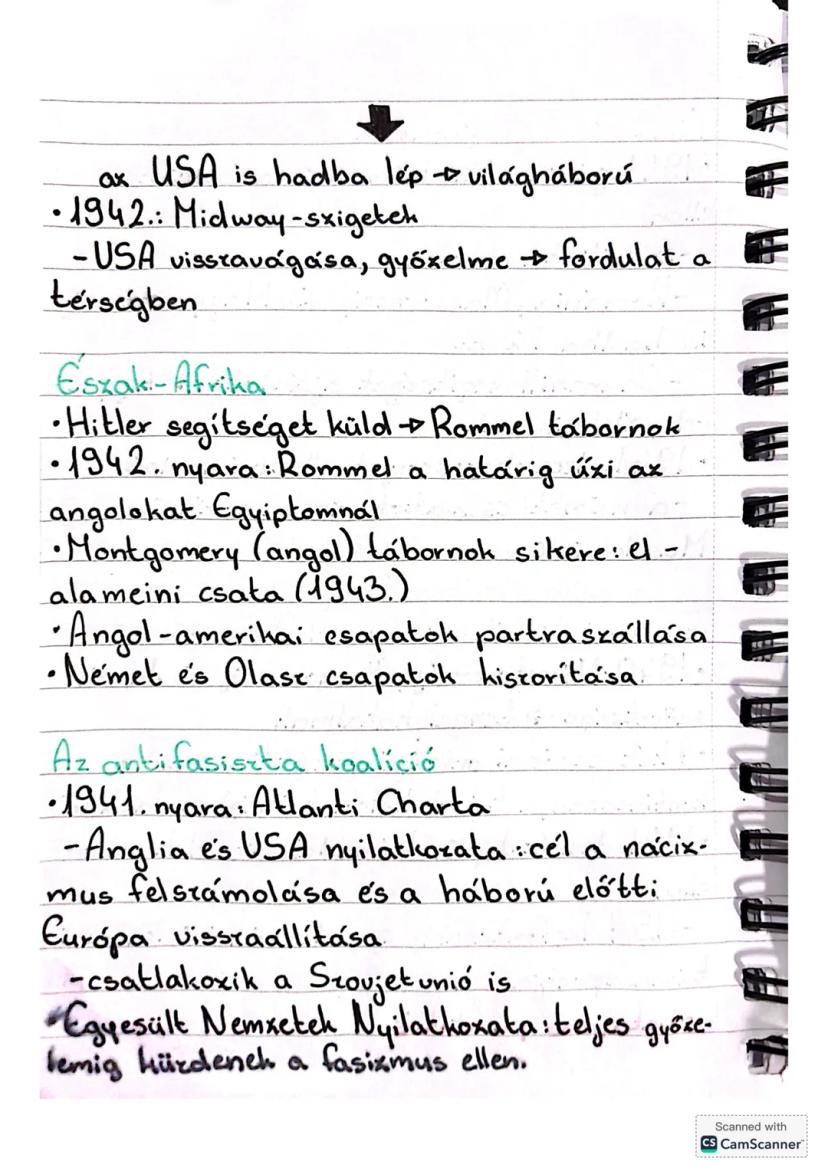 az USA is hadba lép → világháború
• 1942.: Midway-szigetek
- USA visszavágása, győzelme → fordulat a
térségben
Észak-Afrika
• Hitler segítséget küld → Rommel tábornok
• 1942. nyara: Rommel a határig űzi az
angolokat Egyiptomnál
• Montgomery (angol) tábornok sikere: el -
alameini csata (1943.)
• Angol-amerikai csapatok partraszállása
• Német és Olasz csapatok kiszorítása
Az antifasiszta koalíció
• 1941. nyara: Atlanti Charta
- Anglia és USA nyilatkozata: cél a náciz-
mus felszámolása és a háború előtti
Európa visszaállítása
- csatlakozik a Szovjetunió is
• Egyesült Nemzetek Nyilatkozata: teljes győze-
lemig küzdenek a fasizmus ellen.
Scanned with
CS CamScanner